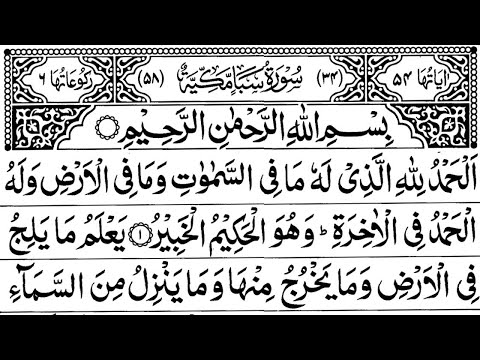 اٰيَاتُهَا ۵۴ (۳۴) سُوْرَةُ سَبَاٍ مَكِّيَّةٌ (۵۸) رُكُوْعَاتُهَا ۶
بِسْمِ اللهِ الرَّحْمٰنِ الرَّحِيْمِ
اَلْحَمْدُ لِلّٰهِ الَّذِىْ لَهٗ مَا فِى السَّمٰوٰتِ وَمَا فِى الْاَرْضِ وَلَهُ
الْحَمْدُ فِى الْاٰخِرَةِ ؕ وَهُوَ الْحَكِيْمُ الْخَبِيْرُ ۝۱ يَعْلَمُ مَا يَلِجُ
فِى الْاَرْضِ وَمَا يَخْرُجُ مِنْهَا وَمَا يَنْزِلُ مِنَ السَّمَآءِ